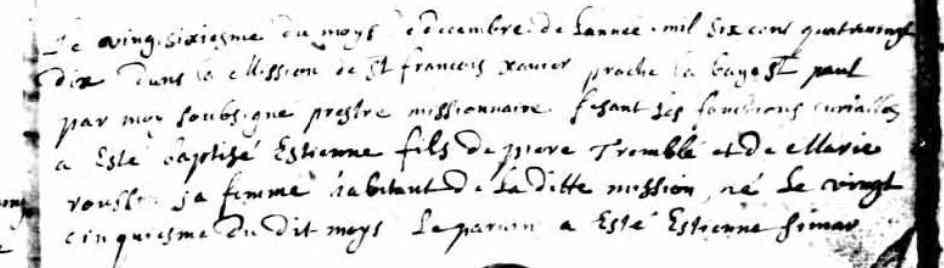 Le vingsixiesme du moys de decembre de l'année mil six cens quatrevingt
dix dans la Mission de St francois xavier proche la baye St paul
par moy soubsigné prestre missionnaire fesant les fonctions curialles
a Esté baptisé Estienne fils de piere Tremblé et de Marie
rousle sa femme habitant de laditte mission né Le vingt
cinquiesme du dit moys Le parain a Esté Estienne simar